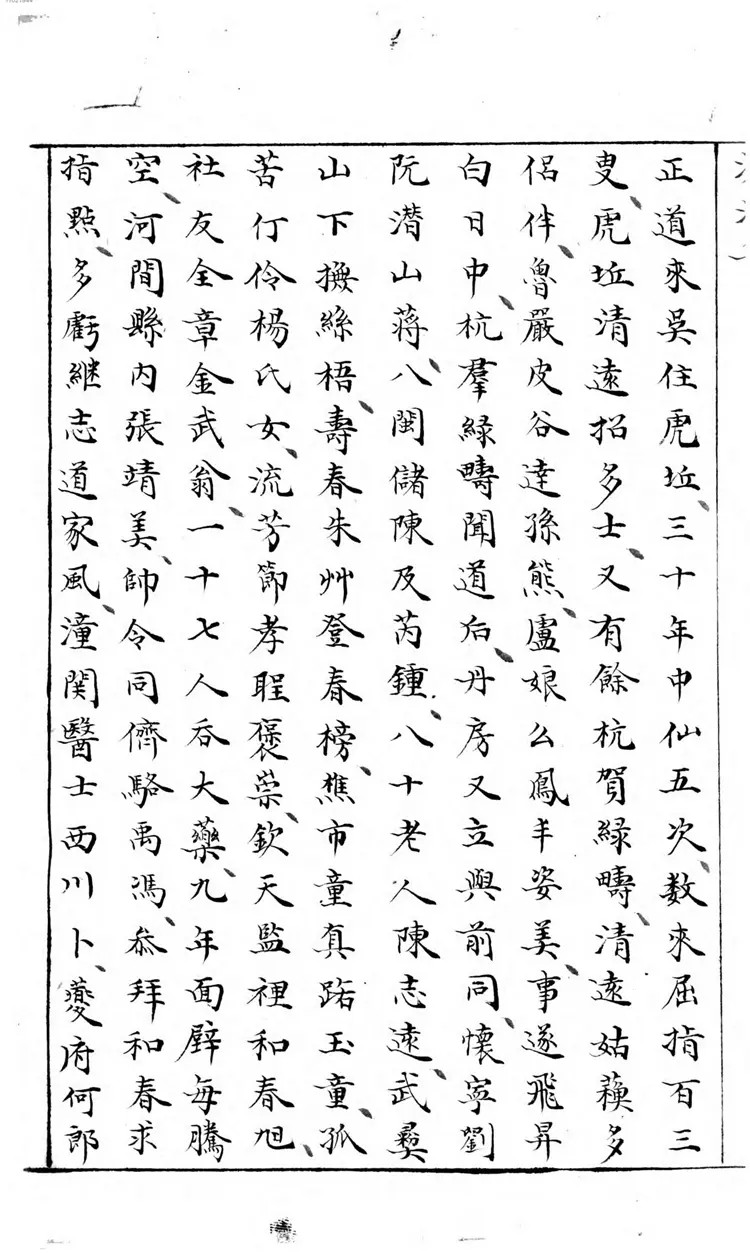 正道來吳住虎坵、三十年中仙五次、数來屈指百三
叟、虎坵清遠招多士、又有餘杭賀緑疇、清遠姑蘓多
侶伴、魯嚴皮谷達孫熊、盧娘么鳳丰姿美、事遂飛昇
白日中、杭羣緑疇聞道后、丹房又立與前同、懷寧劉
阮潜山蔣、八閩儲陳及芮鍾、八十老人陳志遠、武彛
山下撫絲梧、壽春朱艸登春榜、樵市童真踏玉童、孤
苦仃伶楊氏女、流芳節孝聖褒崇、欽天監裡和春旭、
社友全章金武翁、一十七人吞大藥、九年面壁每騰
空、河間縣内張靖美、帥令同儕駱禹馮、叅拜和春求
指㸃、多虧継志道家風、潼関醫士西川卜、夔府何郎